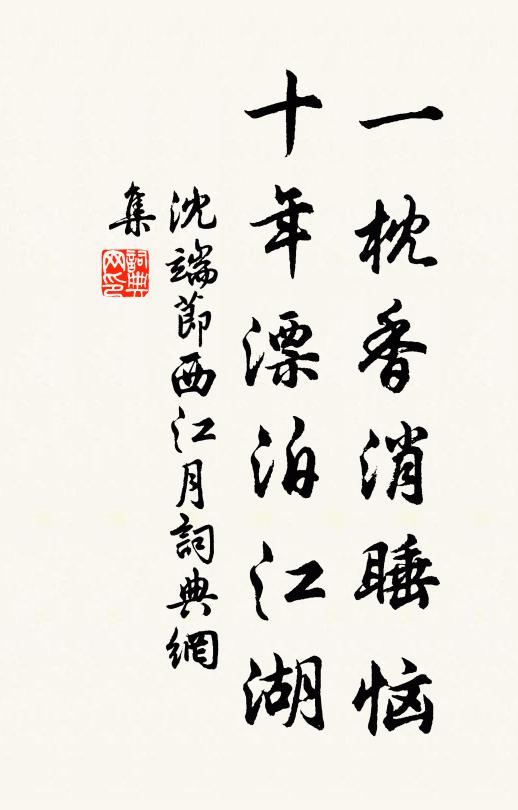 一枕香消睡恼
十年漂泊江湖
沈端節西江月詞典網
集
詞典
网印